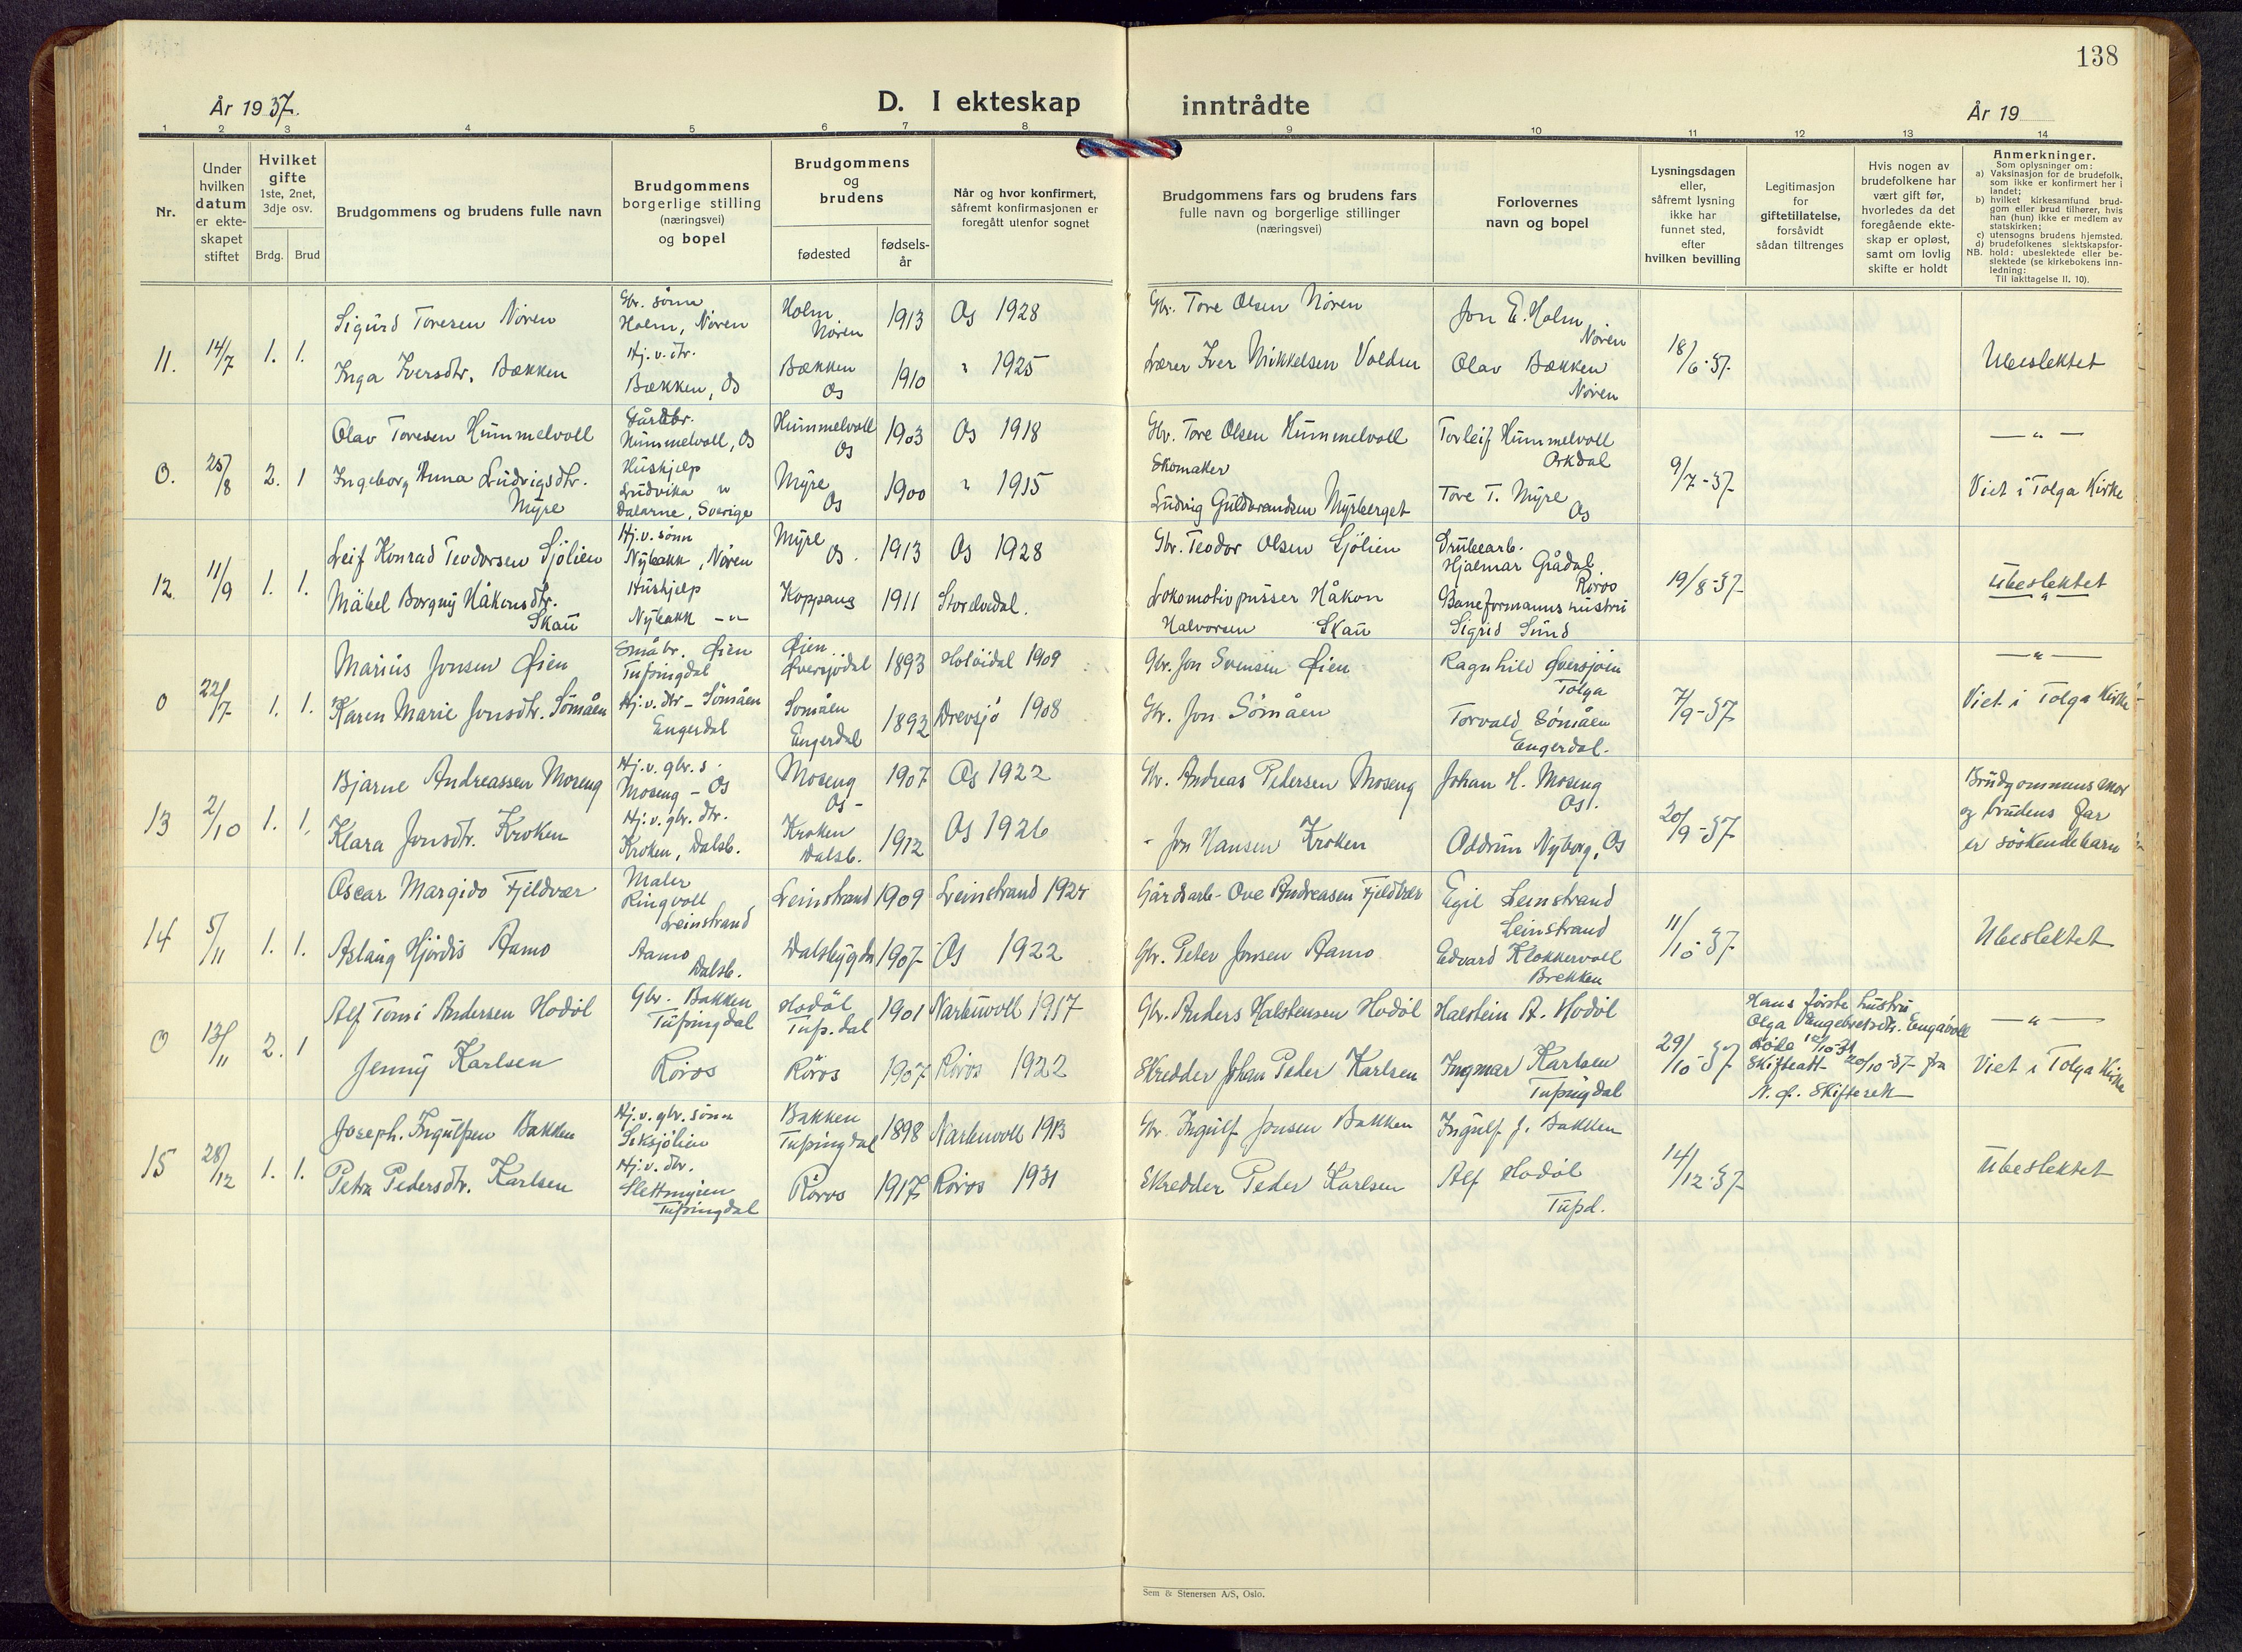 138
År 1937.
D. I ekteskap inntrådte
År 19
1 2 3 4 5 6 7 8 9 10 11 12 13 14
Nr.
Under
hvilken
datum
er ekte-
skapet
stiftet
Hvilket
gifte
1ste, 2net,
3dje osv.
Brdg. Brud
Brudgommens og brudens fulle navn
Brudgommens
borgerlige stilling
(næringsvei)
og bopel
Brudgommens
og
brudens
fødested
fødsels-
år
Når og hvor konfirmert,
såfremt konfirmasjonen er
foregått utenfor sognet
Brudgommens fars og brudens fars
fulle navn og borgerlige stillinger
(næringsvei)
Forlovernes
navn og bopel
Lysningsdagen
eller,
såfremt lysning
ikke har
funnet sted,
efter
hvilken bevilling
Legitimasjon
for
giftetillatelse,
forsåvidt
sådan tiltrenges
Hvis nogen av
brudefolkene har
vært gift før,
hvorledes da det
foregående ekte-
skap er opløst,
samt om lovlig
skifte er holdt
Anmerkninger.
Som oplysninger om:
a) Vaksinasjon for de brudefolk,
som ikke er konfirmert her i
landet;
b) hvilket kirkesamfund brud-
gom eller brud tilhører, hvis
han (hun) ikke er medlem av
statskirken;
c) utensogns brudens hjemsted.
d) brudefolkenes slektskapsfor-
NB. hold: ubeslektede eller be-
slektede (se kirkebokens inn-
ledning:
Til iakttagelse II. 10).
11. 14/7 1. 1.
Sigurd Toresen Nören
Inga Iversdtr. Bækken
Gbr. sönn
Holm, Nören
Hj.v. dtr.
Bækken, Os
Holm
Nören
1913
Os 1928
Bækken
Os
1910
" 1925
Gbr. Tore Olsen Nören
Lærer Iver Mikkelsen Volden
Jon E. Holm
Nören
Olav Bækken
Nören
18/6-37.
Ubeslektet
0. 25/8 2. 1
Olav Toresen Hummelvoll
Ingeborg Anna Ludvigsdtr.
Myre
Gårdbr.
Hummelvoll, Os
Hushjelp
Ludvika
Dalarne, Sverige
Hummelvoll
Os
1903
Os 1918
Myre
Os
1900
" 1915
Gbr. Tore Olsen Hummelvoll
Skomaker
Ludvig Guldbrandsen Myrberget
Torleif Hummelvoll
Orkdal
Tore T. Myre
Os
9/7-37
— " —
Viet i Tolga Kirke
12. 11/9 1. 1.
Leif Konrad Teodorsen Sjölien
Mäbel Borgny Håkonsdtr.
Skau
Hj.v. sönn
Nybakk, Nören
Hushjelp
Nybakk -"-
Myre
Os.
1913
Os 1928
Koppang
1911
Storelvdal.
Gbr. Teodor Olsen Sjölien
Lokomotivpusser Håkon
Halvorsen Skau
Grubearb.
Hjalmar Grådal
Röros
Baneformanns hustru
Sigrid Sund
19/8-37
Ubeslektet
0 22/7 1. 1.
Marius Jonsen Øien
Karen Marie Jonsdtr. Sömåen
Småbr. Øien
Tufsingdal
Hj.v. dtr - Sömåen
Engerdal
Øien
Øversjödal
1893
Holöidal 1909
Sömåen
Engerdal
1892
Drevsjö 1908
Gbr. Jon Svensen Øien
Gbr. Jon Sömåen
Ragnhild Øversjöen
Tolga
Torvald Sömåen
Engerdal.
7/9-37
— " —
Viet i Tolga Kirke
13 2/10 1. 1.
Bjarne Andreassen Moseng
Klara Jonsdtr. Kroken
Hj.v. gbr. s.
Moseng - Os
Hj.v. gbr. dtr.
Kroken, Dalsb.
Moseng
Os -
1907
Os 1922
Kroken
Dalsb.
1912
Os 1926
Gbr. Andreas Pedersen Moseng
- Jon Hansen Kroken
Johan H. Moseng
Os.
Oddrun Nyborg, Os
20/9-37
Brudgommens mor
og brudens far
er söskendebarn
14 5/11 1. 1.
Oscar Margido Fjeldvær
Aslaug Hjördis Aamo
Maler
Ringvoll
Leinstrand
Aamo
Dalsb.
Leinstrand
1909
Leinstrand 1924
Dalsbygda
1907
Os 1922
Gårdsarb- Ove Andreasen Fjeldvær
Gbr. Peter Jonsen Aamo
Egil Leinstrand
Leinstrand
Edvard Klokkervoll
Brekken
11/10-37
Ubeslektet
0 13/11 2. 1
Alf Tomi Andersen Hodöl
Jenny Karlsen
Gbr. Bakken
Tufsingdal
Röros
Hodöl
Tufs.dal
1901
Narbuvoll 1917
Röros
1907
Röros 1922
Gbr. Anders Halstensen Hodöl
Skredder Johan Peder Karlsen
Halstein A. Hodöl
Ingmar Karlsen
Tufsingdal
29/10-37
Hans förste hustru
Olga Engebretsdtr. Engåvoll
Skifteatt- 20/10-37- fra
N. Ø. Skifterett
— " —
Viet i Tolga Kirke
15 28/12 1. 1.
Joseph. Ingulfsen Bakken
Petra Pedersdtr. Karlsen
Hj.v. gbr. sönn
Seksjölien
Hj.v. dtr.
Slettmyren
Tufsingdal
Bakken
Tufsingdal
1898
Narbuvoll 1913
Röros
1917
Röros 1931
Gbr. Ingulf Jonsen Bakken
Skredder Peder Karlsen
Ingulf J. Bakken
Alf Hodöl
Tufsd.
14/12-37
Ubeslektet
Sem & Stenersen A/S, Oslo.